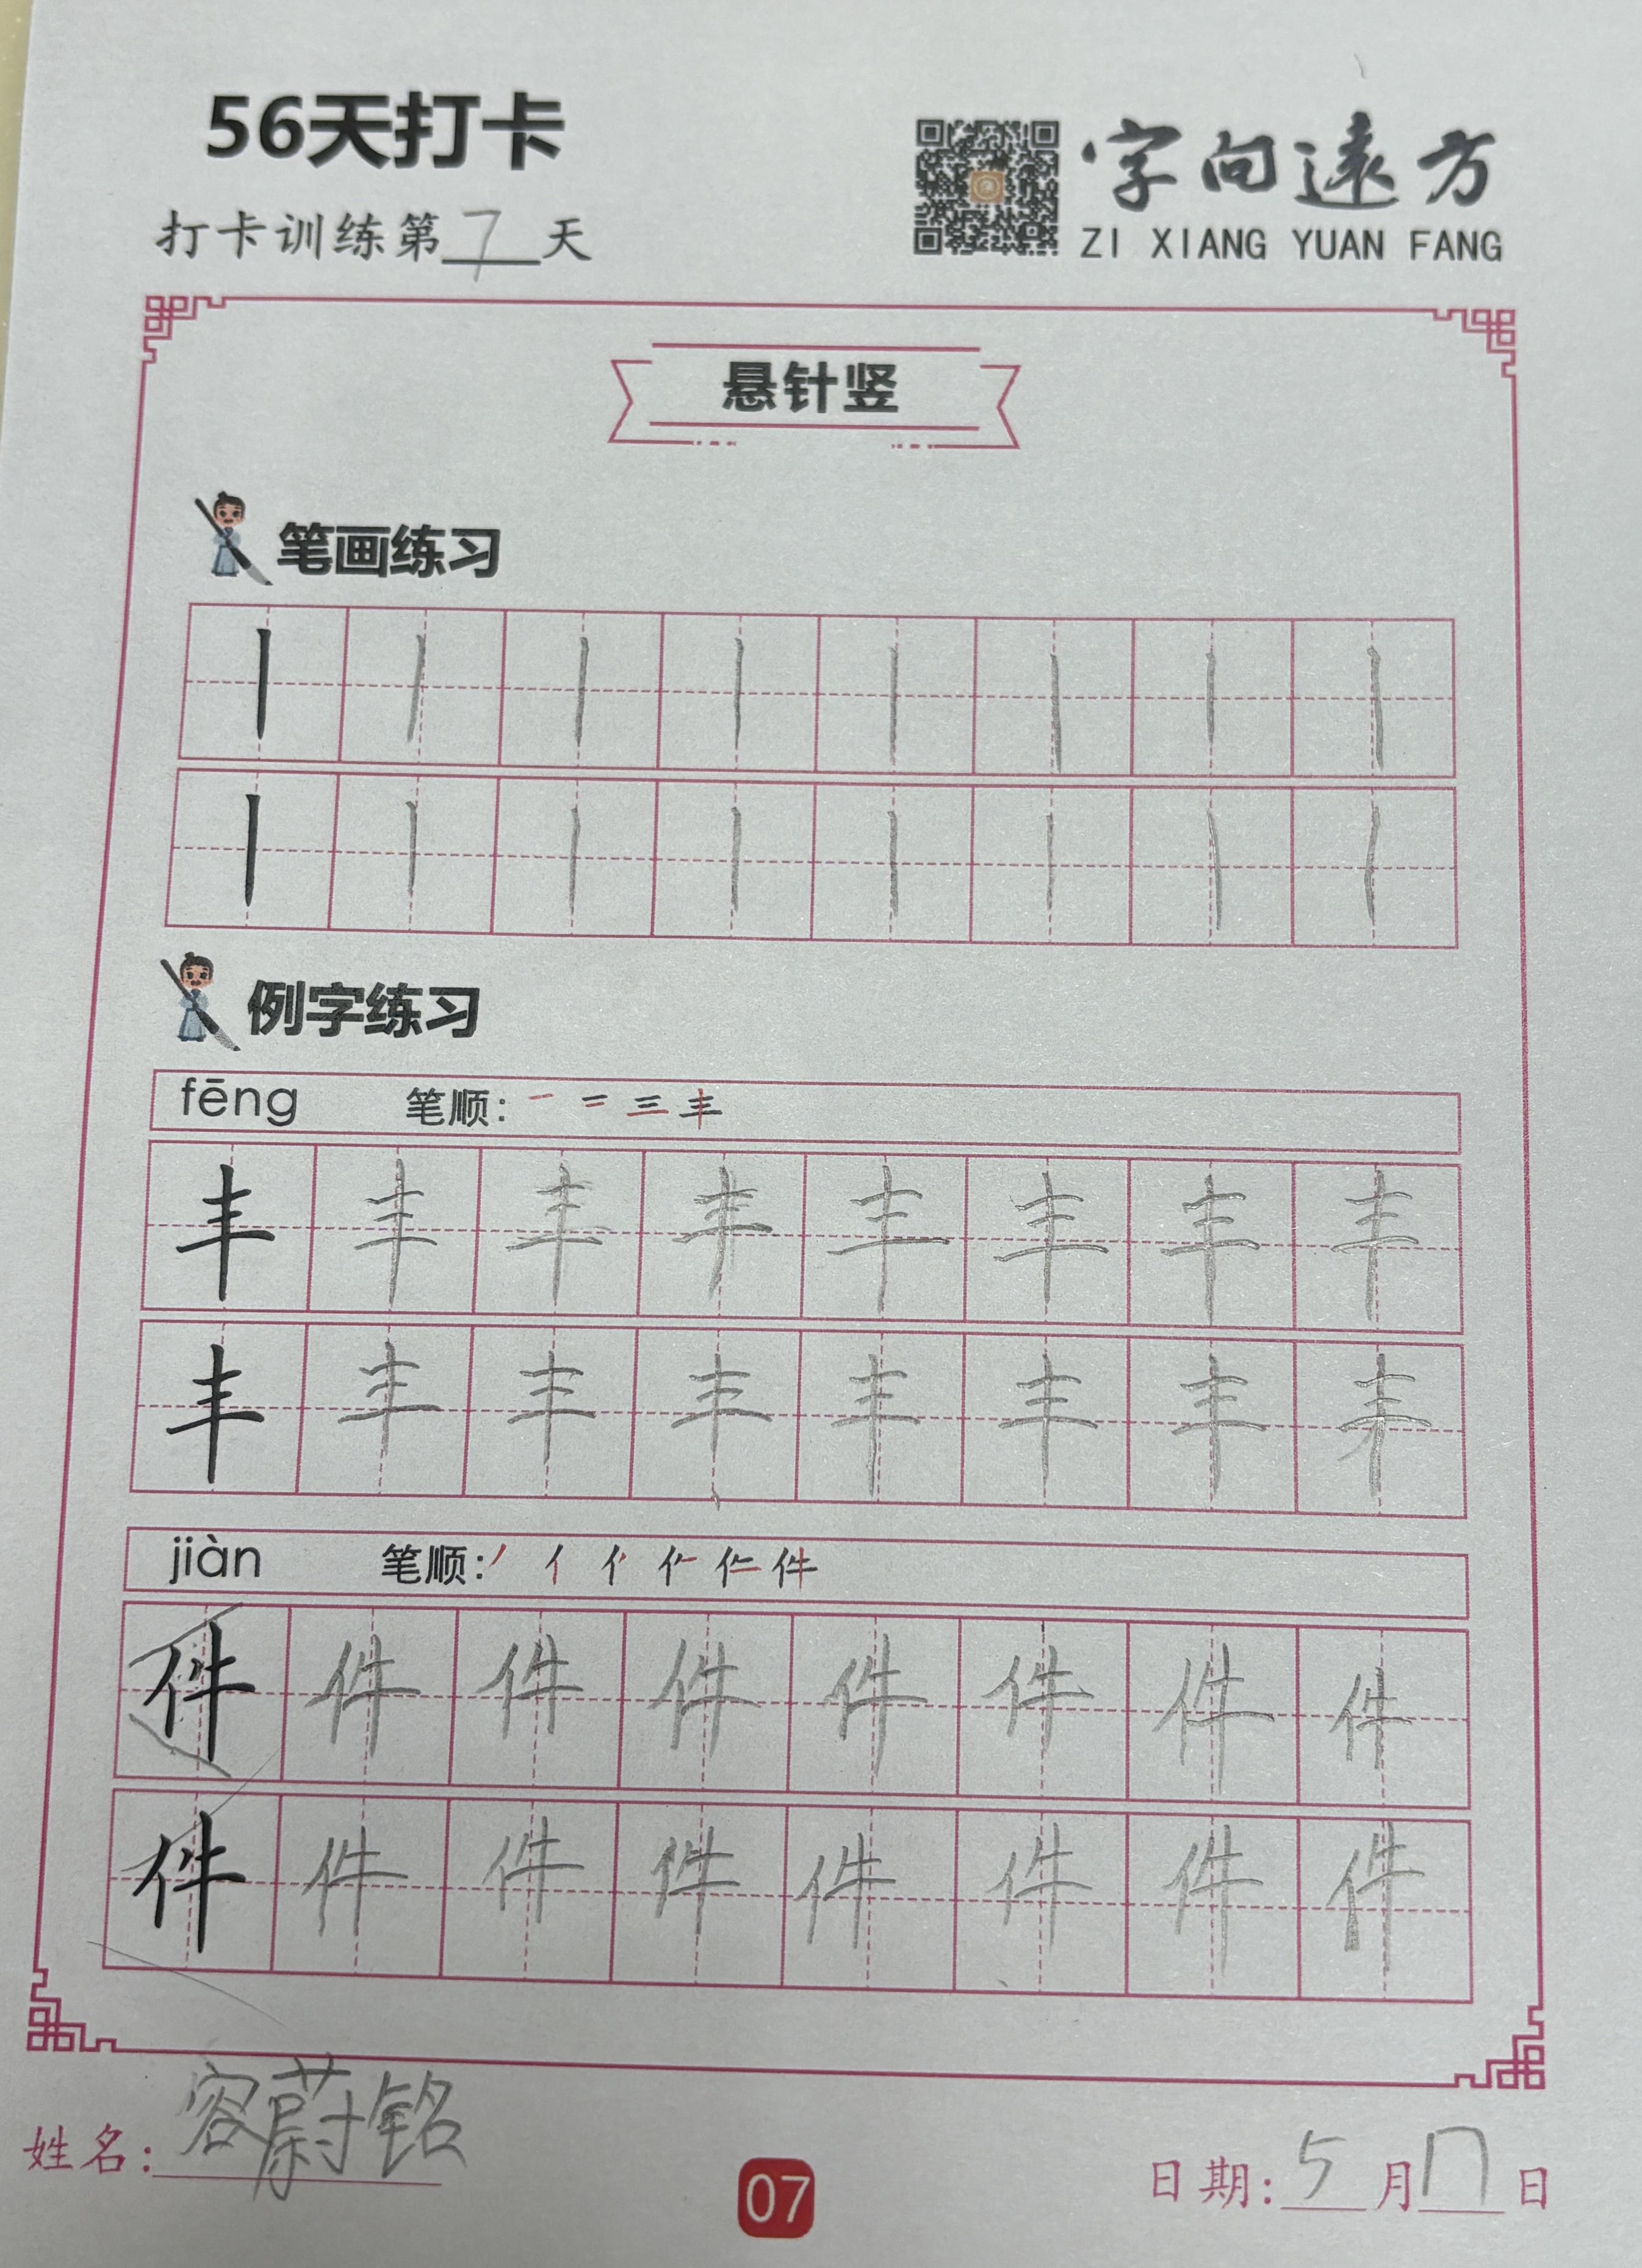 56天打卡
字向遠方
打卡训练第7天
ZI XIANG YUAN FANG
悬针竖
笔画练习
丨 丨 丨 丨 丨 丨 丨 丨
丨 丨 丨 丨 丨 丨 丨 丨
例字练习
fēng 笔顺: 一 二 三 丰
丰 丰 丰 丰 丰 丰 丰 丰
丰 丰 丰 丰 丰 丰 丰 丰
jiàn 笔顺: 丿 亻 件
件 件 件 件 件 件 件 件
件 件 件 件 件 件 件 件
姓名: 容蔚铭
07
日期: 5月17日